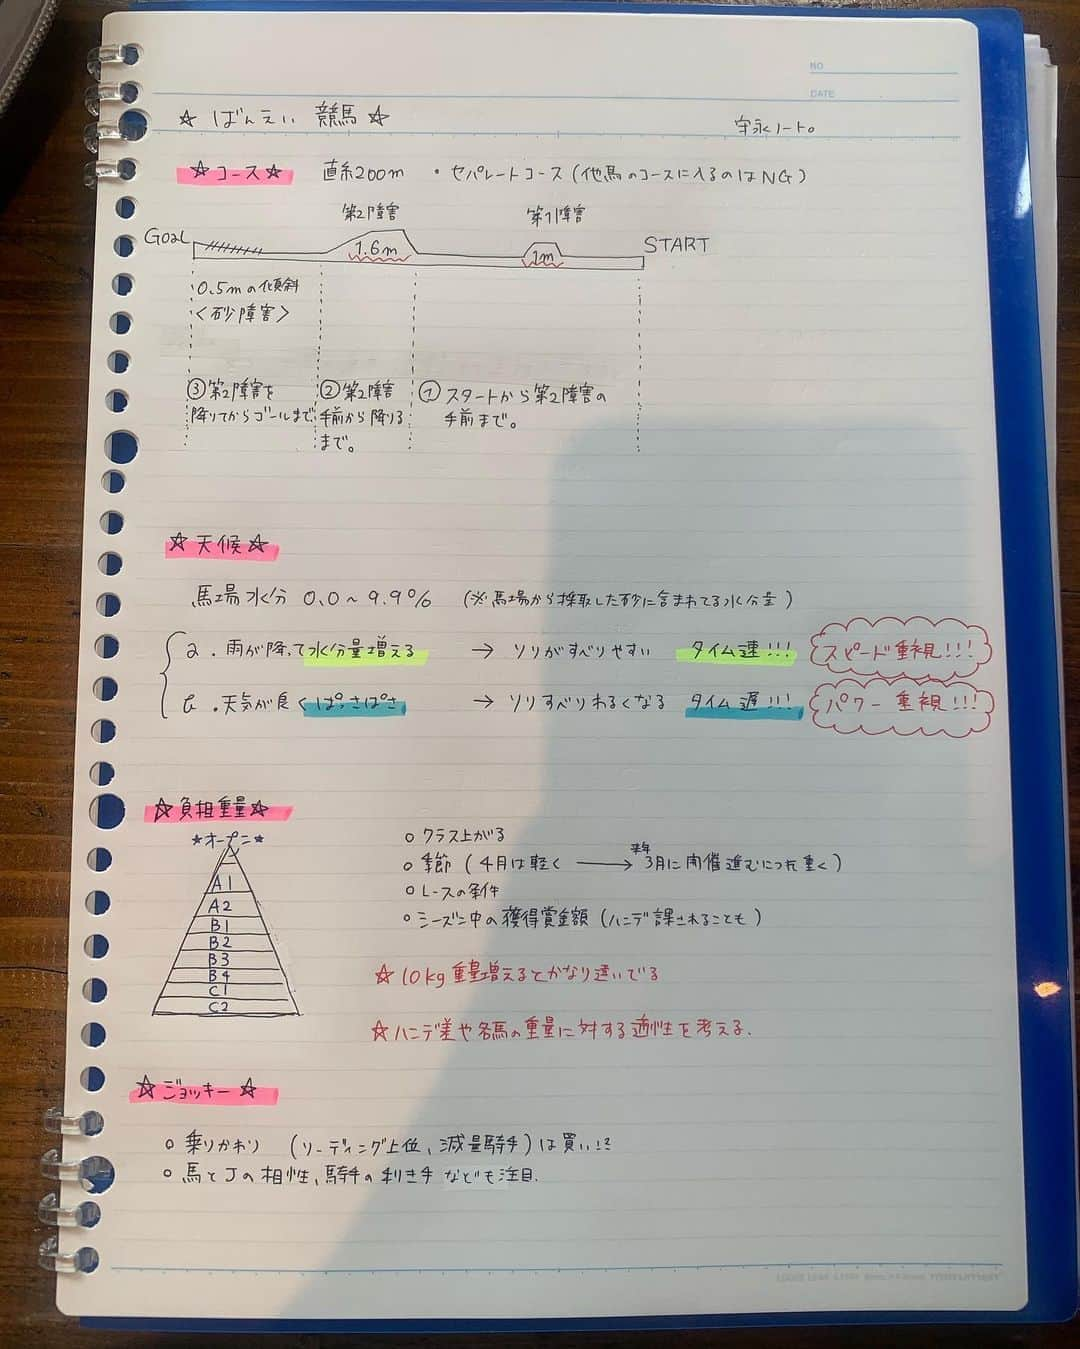 NO
DATE
☆ ばんえい 競馬 ☆
守永ノート。
☆コース☆ 直糸200m ・セパレートコース(他馬のコースに入るのはNG)
第2障害 第1障害
GOaL 1.6m 1m START
0.5mの傾斜
<砂障害>
③第2障害を ②第2障害 ①スタートから第2障害の
降りてからゴールまで 手前から降りる 手前まで。
まで。
☆天候☆
馬場水分 0.0~9.9% (※馬場から採取した砂に含まれてる水分量)
a.雨が降って水分量増える → ソリがすべりやすい タイム速!!! スピード重視!!!
b.天気が良くぱっさぱさ → ソリすべりわるくなる タイム遅!!! パワー重視!!!
☆負担重量☆
★オープン★
A1
A2
B1
B2
B3
B4
C1
C2
○クラス上がる
○季節(4月は軽く → 来年3月に開催進むにつれ重く)
○レースの条件
○シーズン中の獲得賞金額(ハンデ課されることも)
☆10kg重量増えるとかなり違いでる
☆ハンデ差や各馬の重量に対する適性を考える.
☆ジョッキー☆
○乗りかわり (リーディング上位、減量騎手)は買い!?
○馬とJの相性、騎手の利き手なども注目.